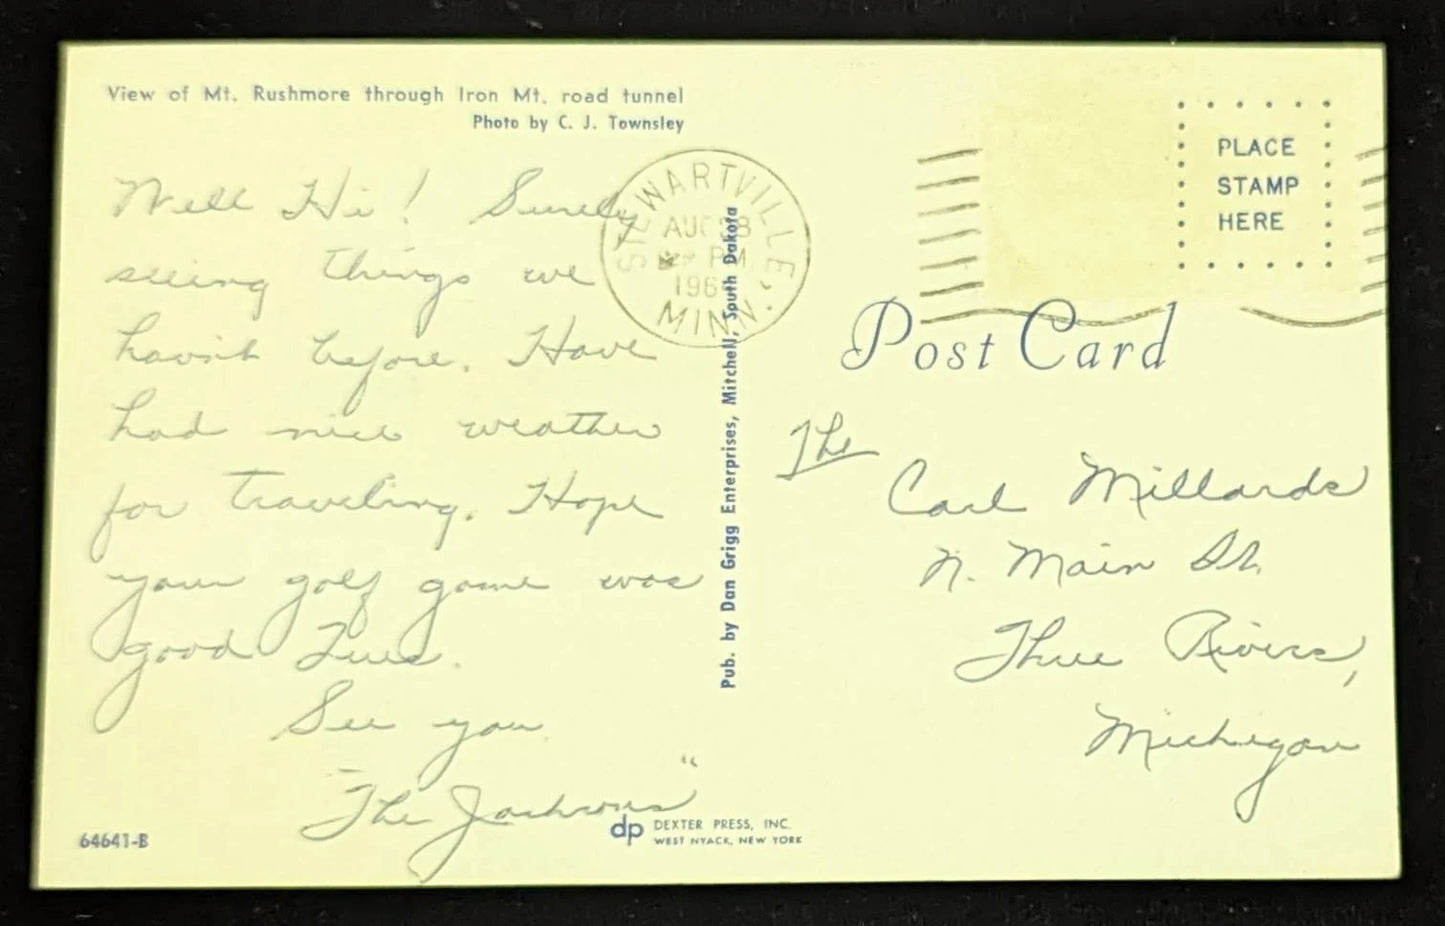 View of Mt. Rushmore through Iron Mt. road tunnel
Photo by C. J. Townsley
Well Hi! Surely
seeing things we
havn't before. Have
had nice weather
for traveling. Hope
your golf game was
good Tues.
See you
"The Jacksons"
64641-B
STEWARTVILLE,
AUG 28
PM
196
MINN.
Pub. by Dan Grigg Enterprises, Mitchell, South Dakota
dp DEXTER PRESS, INC.
WEST NYACK, NEW YORK
PLACE
STAMP
HERE
Post Card
The
Carl Millards
N. Main St.
Three Rivers,
Michigan